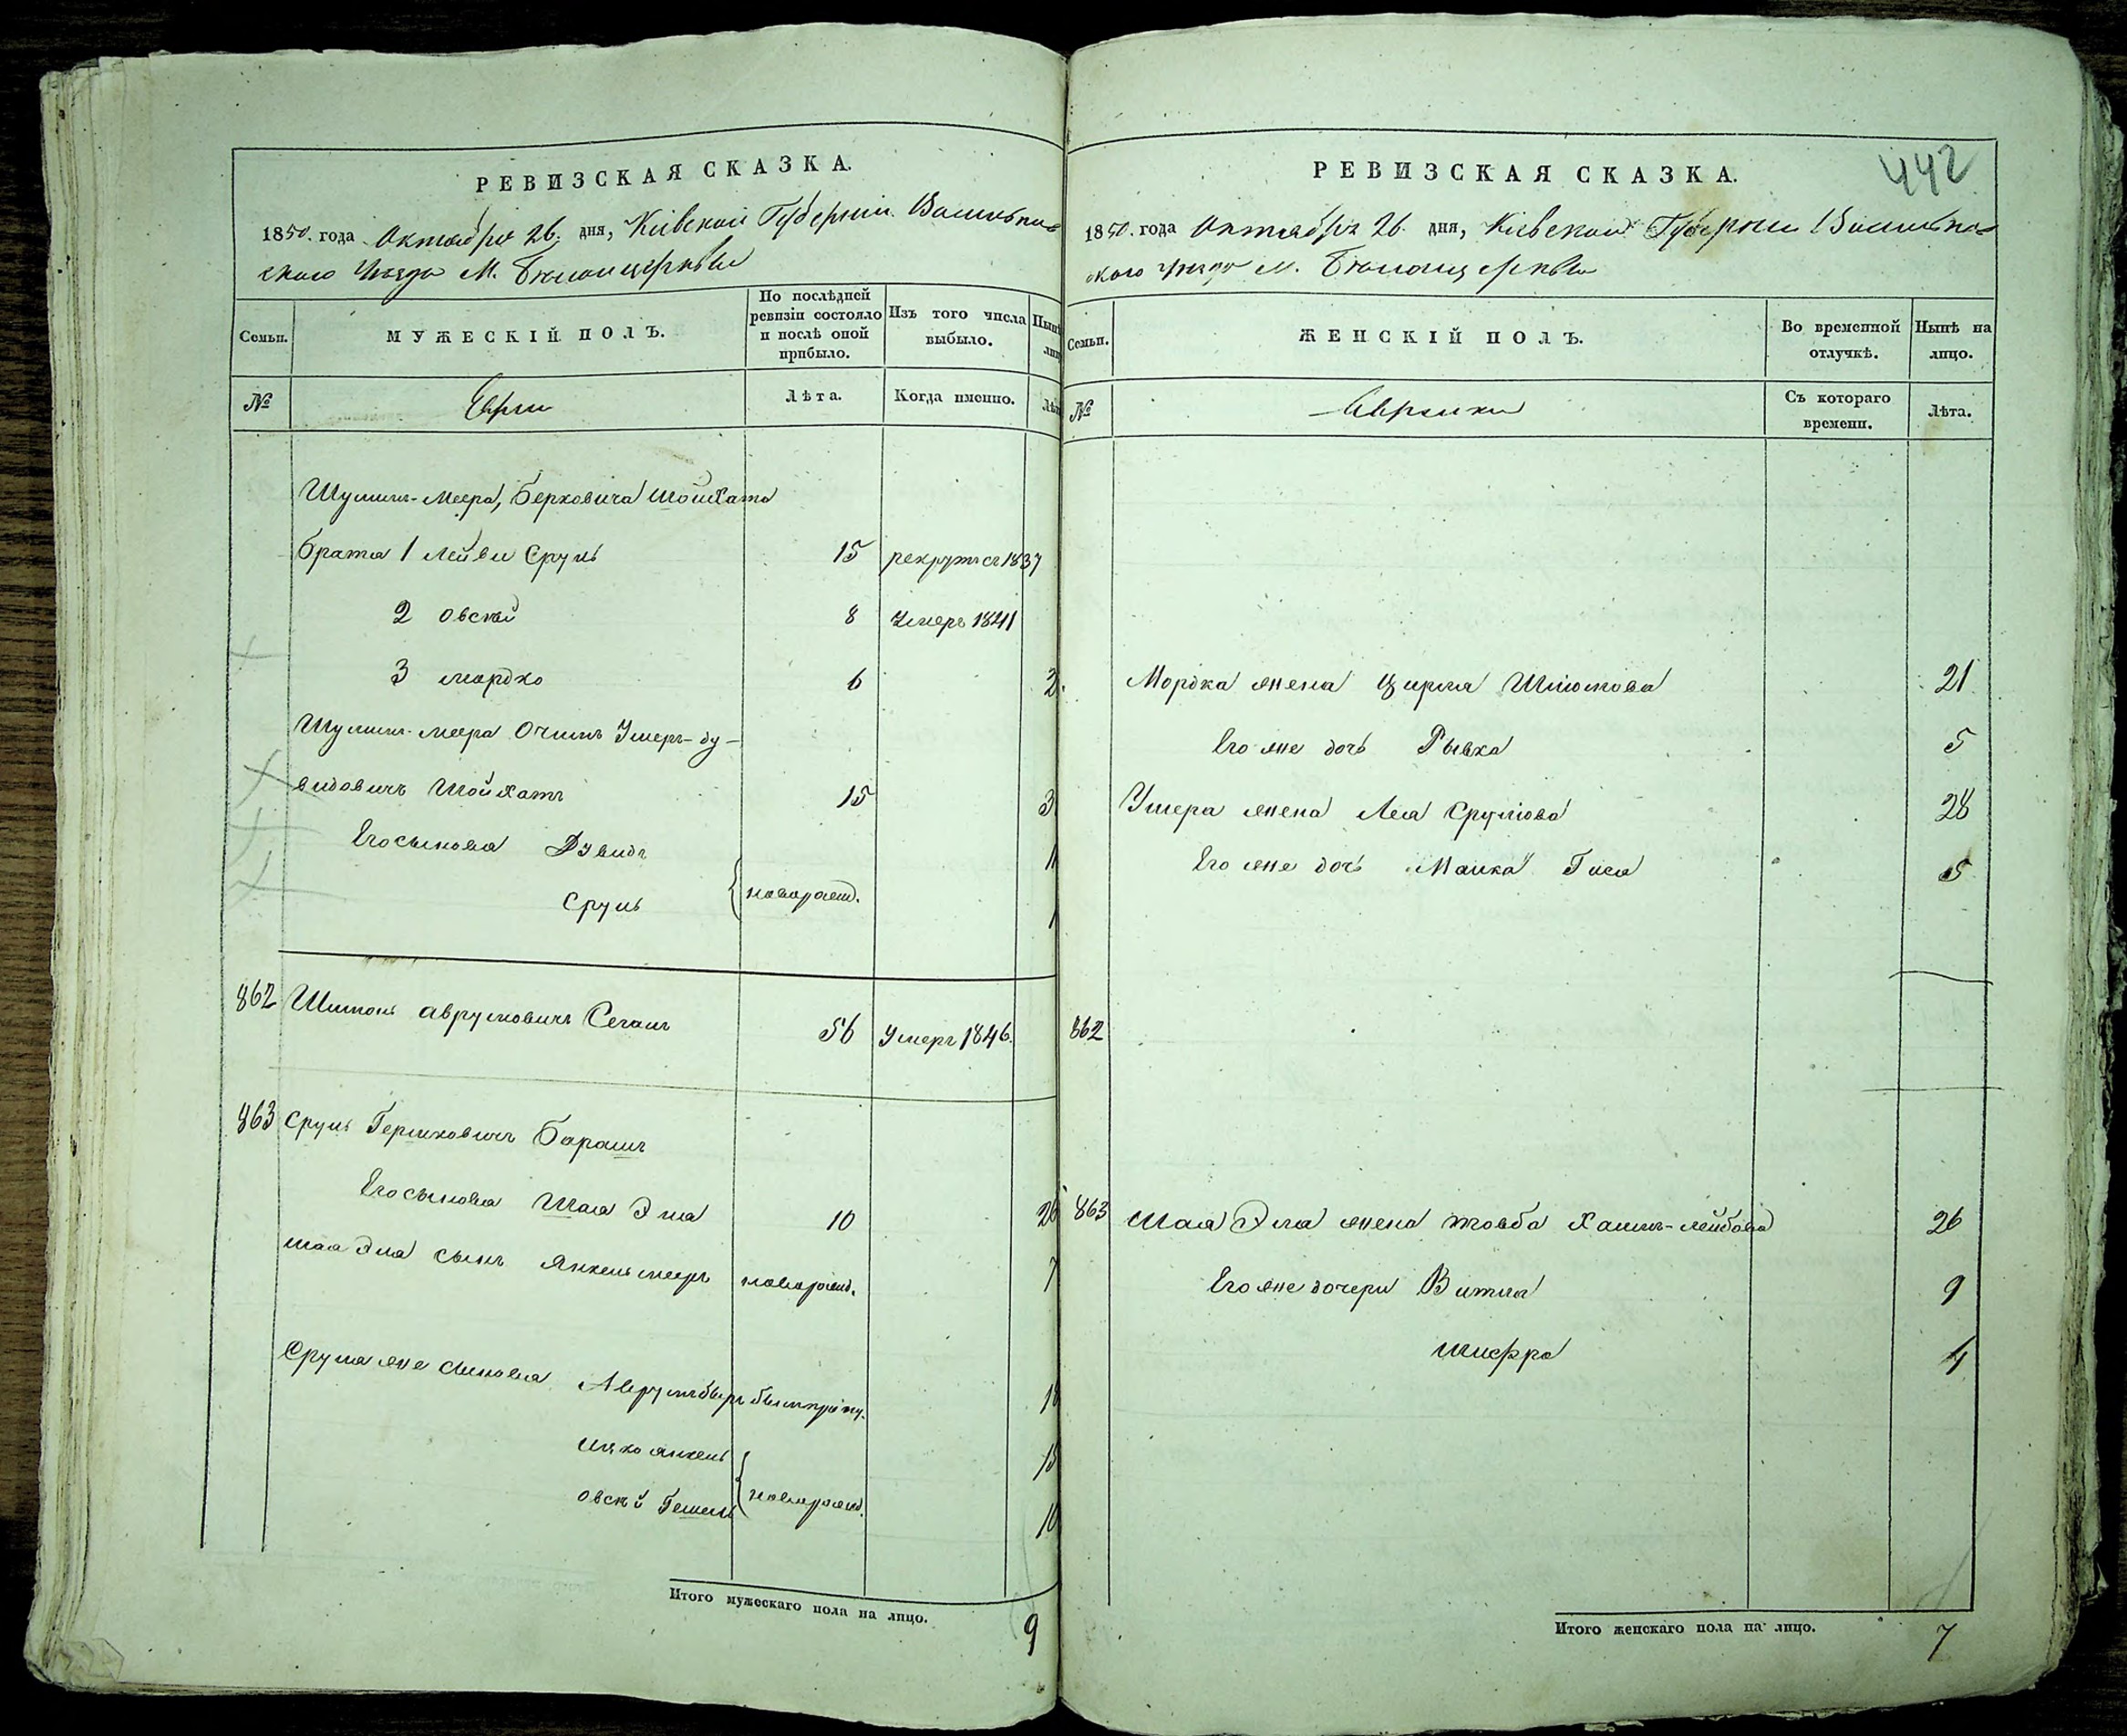 РЕВИЗСКАЯ СКАЗКА.
1850. года Октября 26. дня, Кіевской Губерніи Васильков-
скаго Уезда М. Белоцеркви
Семьи. МУЖЕСКІЙ ПОЛЪ. По послѣдней ревизіи состояло и послѣ оной прибыло. Изъ того числа выбыло. Нынѣ
№ Евреи Лѣта. Когда именно. Лѣта
Шулимъ-Меера, Берковича Шойхата
брата 1 Лейви Сруль 15 рекрутъ съ 1837
2 Овсѣй 8 Умеръ 1841
3 Мордко 6 2
Шулимъ-Меера Отчимъ Ушеръ-Ду-
видовичъ Шойхатъ 15 3
Его сыновья Дувидъ 11
Сруль новорожд. 1
862 Шимонъ Аврумовичъ Сегалъ 56 Умеръ 1846.
863 Сруль Гершковичъ Барашъ
Его сыновья Шая Эля 10 26
Шая Эля сынъ Янкель Мееръ новорожд. 7
Сруля же сыновья Аврумъ Беръ 18
Ицко Янкель 15
Овсѣй Гешель новорожд. 10
Итого мужескаго пола на лицо. 9
442
РЕВИЗСКАЯ СКАЗКА.
1850. года Октября 26. дня, Кіевской Губерніи Васильков-
скаго уезда М. Белоцеркви
Семьи. ЖЕНСКІЙ ПОЛЪ. Во временной отлучкѣ. Нынѣ на лицо.
№ Еврейки Съ котораго времени. Лѣта.
Мордка жена Цирля Шлюмова 21
Его же дочь Рывка 5
Ушера жена Лея Срулiова 28
Его же дочь Малка Гися 5
862
863 Шая Эля жена Товба Хаимъ-Лейбова 26
Его же дочери Витля 9
Шифра 4
Итого женскаго пола на лицо. 7